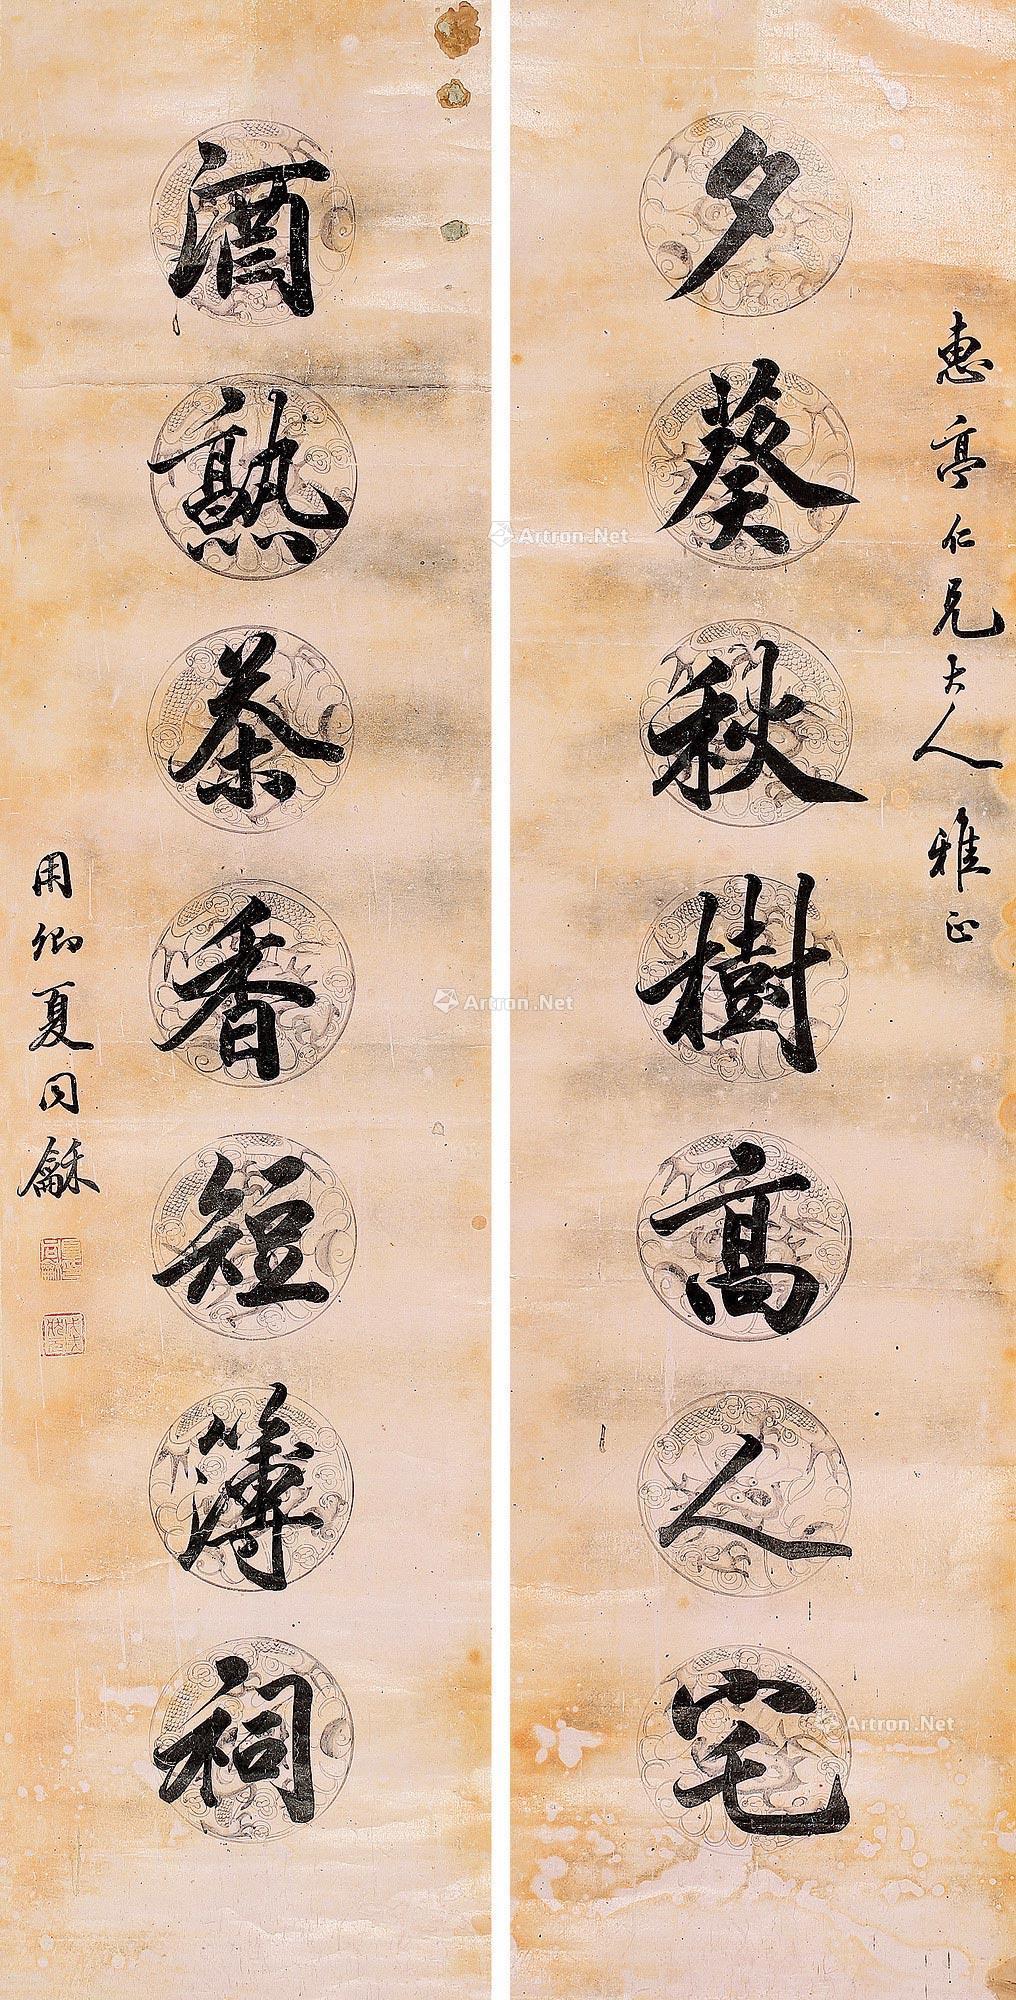 惠亭仁兄大人雅正
夕葵秋樹高人宅
酒熟茶香短簿祠
用卿夏同龢
Artron.Net
Artron.Net
Artron.Net